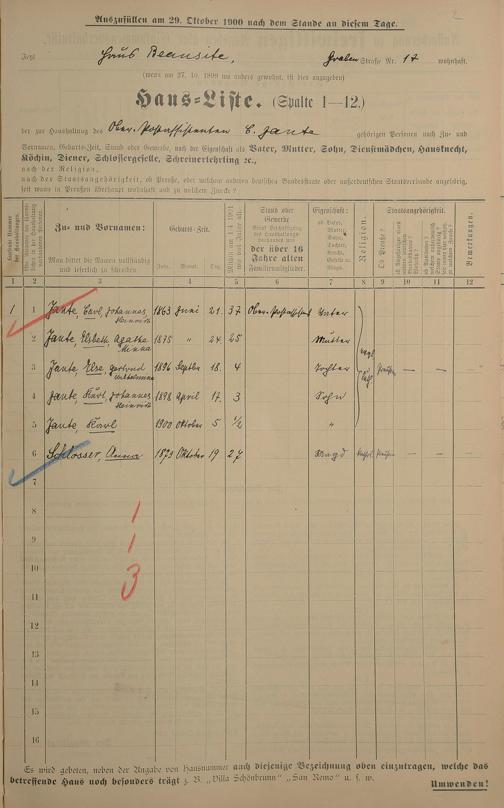 Auszufüllen am 29. Oktober 1900 nach dem Stande an diesem Tage.
2
Jetzt Haus Beausite, Graben Straße Nr. 17 wohnhaft.
(wenn am 27. 10. 1899 wo anders gewohnt, ist dies anzugeben)
Haus-Liste. (Spalte 1—12.)
der zur Haushaltung des Ober-Postassistenten C. Jante gehörigen Personen nach Zu- und
Vornamen, Geburts-Zeit, Stand oder Gewerbe, nach der Eigenschaft als Vater, Mutter, Sohn, Dienstmädchen, Hausknecht,
Köchin, Diener, Schlossergeselle, Schreinerlehrling &c.,
nach der Religion,
nach der Staatsangehörigkeit, ob Preuße, oder welchem anderen deutschen Bundesstaate oder außerdeutschen Staatsverbande angehörig,
seit wann in Preußen überhaupt wohnhaft und zu welchem Zwecke?
Zu- und Vornamen:
Man bittet die Namen vollständig
und leserlich zu schreiben
Geburts-Zeit.
Jahr. Monat. Tag.
Stand oder
Gewerbe
der über 16
Jahre alten
Familienmitglieder.
Eigenschaft:
ob Vater,
Mutter,
Sohn,
Tochter,
Religion.
Staatsangehörigkeit.
Ob Preuße?
Bemerkungen.
1 2 3 4 5 6 7 8 9 10 11 12
1 1 Jante, Carl, Johannes Heinrich 1863 Juni 21. 37 Ober-Postassistent Vater
2 Jante, Elsbeth, Agathe Minna 1875 „ 24. 25 Mutter
3 Jante, Else, Gertrud Wilhelmine 1896 Septbr 18. 4 Tochter evgl. luth. Preußen — —
4 Jante, Kurt, Johannes Heinrich 1898 April 17. 3 Sohn
5 Jante, Karl 1900 Oktober 5 ½ „
6 Schlosser, Anna 1873 Oktober 19 27 Magd kathol. Preußen — —
7
8
1
9
1
10
3
11
12
13
14
15
16
Es wird gebeten, neben der Angabe von Hausnummer auch diejenige Bezeichnung oben einzutragen, welche das
betreffende Haus noch besonders trägt z. B. „Villa Schönbrunn“ „San Remo“ u. s. w.
Umwenden!